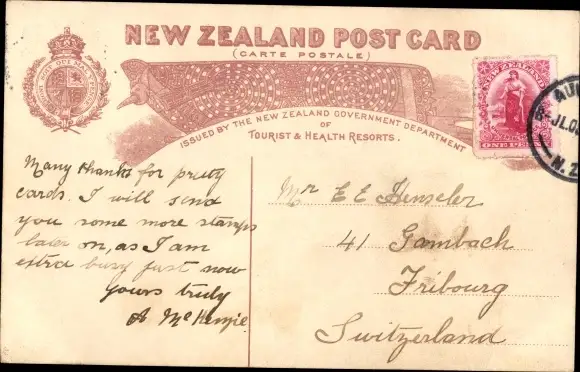 NEW ZEALAND POST CARD
(CARTE POSTALE)
ISSUED BY THE NEW ZEALAND GOVERNMENT DEPARTMENT
OF
TOURIST & HEALTH RESORTS.
NEW ZEALAND
ONE PENNY
AU
JL.0
N.Z
Many thanks for pretty
cards. I will send
you some more stamps
later on, as I am
extra busy just now
Yours truly
A McKenzie
Mr E E Henseler
41 Gambach
Fribourg
Switzerland